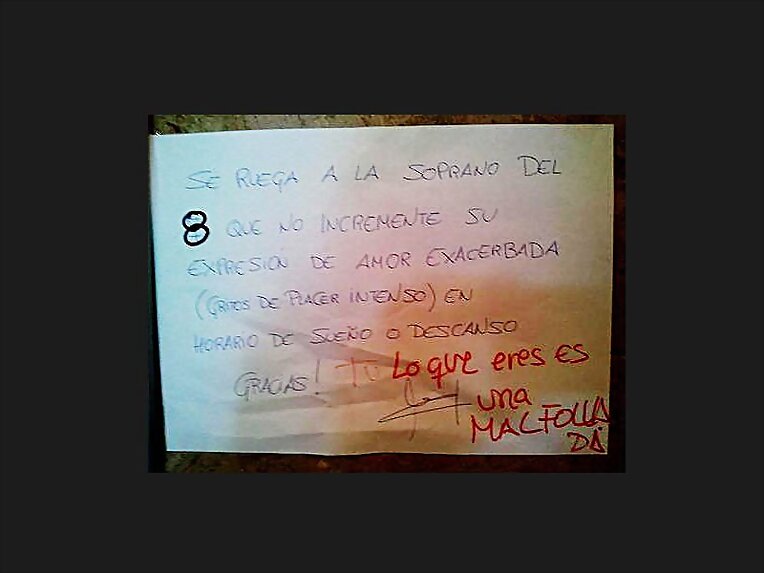 SE RUEGA A LA SOPRANO DEL
8 QUE NO INCREMENTE SU
EXPRESIÓN DE AMOR EXACERBADA
(GRITOS DE PLACER INTENSO) EN
HORARIO DE SUEÑO O DESCANSO
GRACIAS! TU Lo que eres es
una
MALFOLLA
DA